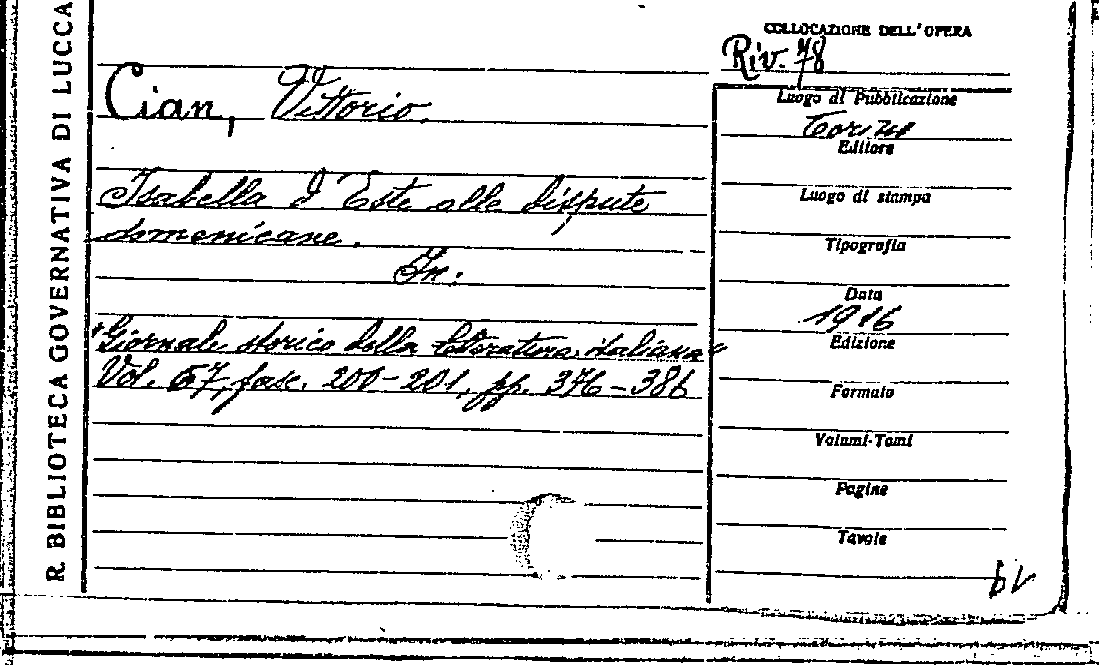 R. BIBLIOTECA GOVERNATIVA DI LUCCA
COLLOCAZIONE DELL'OPERA
Riv. 78
Cian, Vittorio.
Isabella d'Este alle dispute
domenicane.
In:
"Giornale storico della letteratura italiana"
Vol. 67, fasc. 200-201, pp. 376-386
Luogo di Pubblicazione
Torino
Editore
Luogo di stampa
Tipografia
Data
1916
Edizione
Formato
Volumi-Tomi
Pagine
Tavole